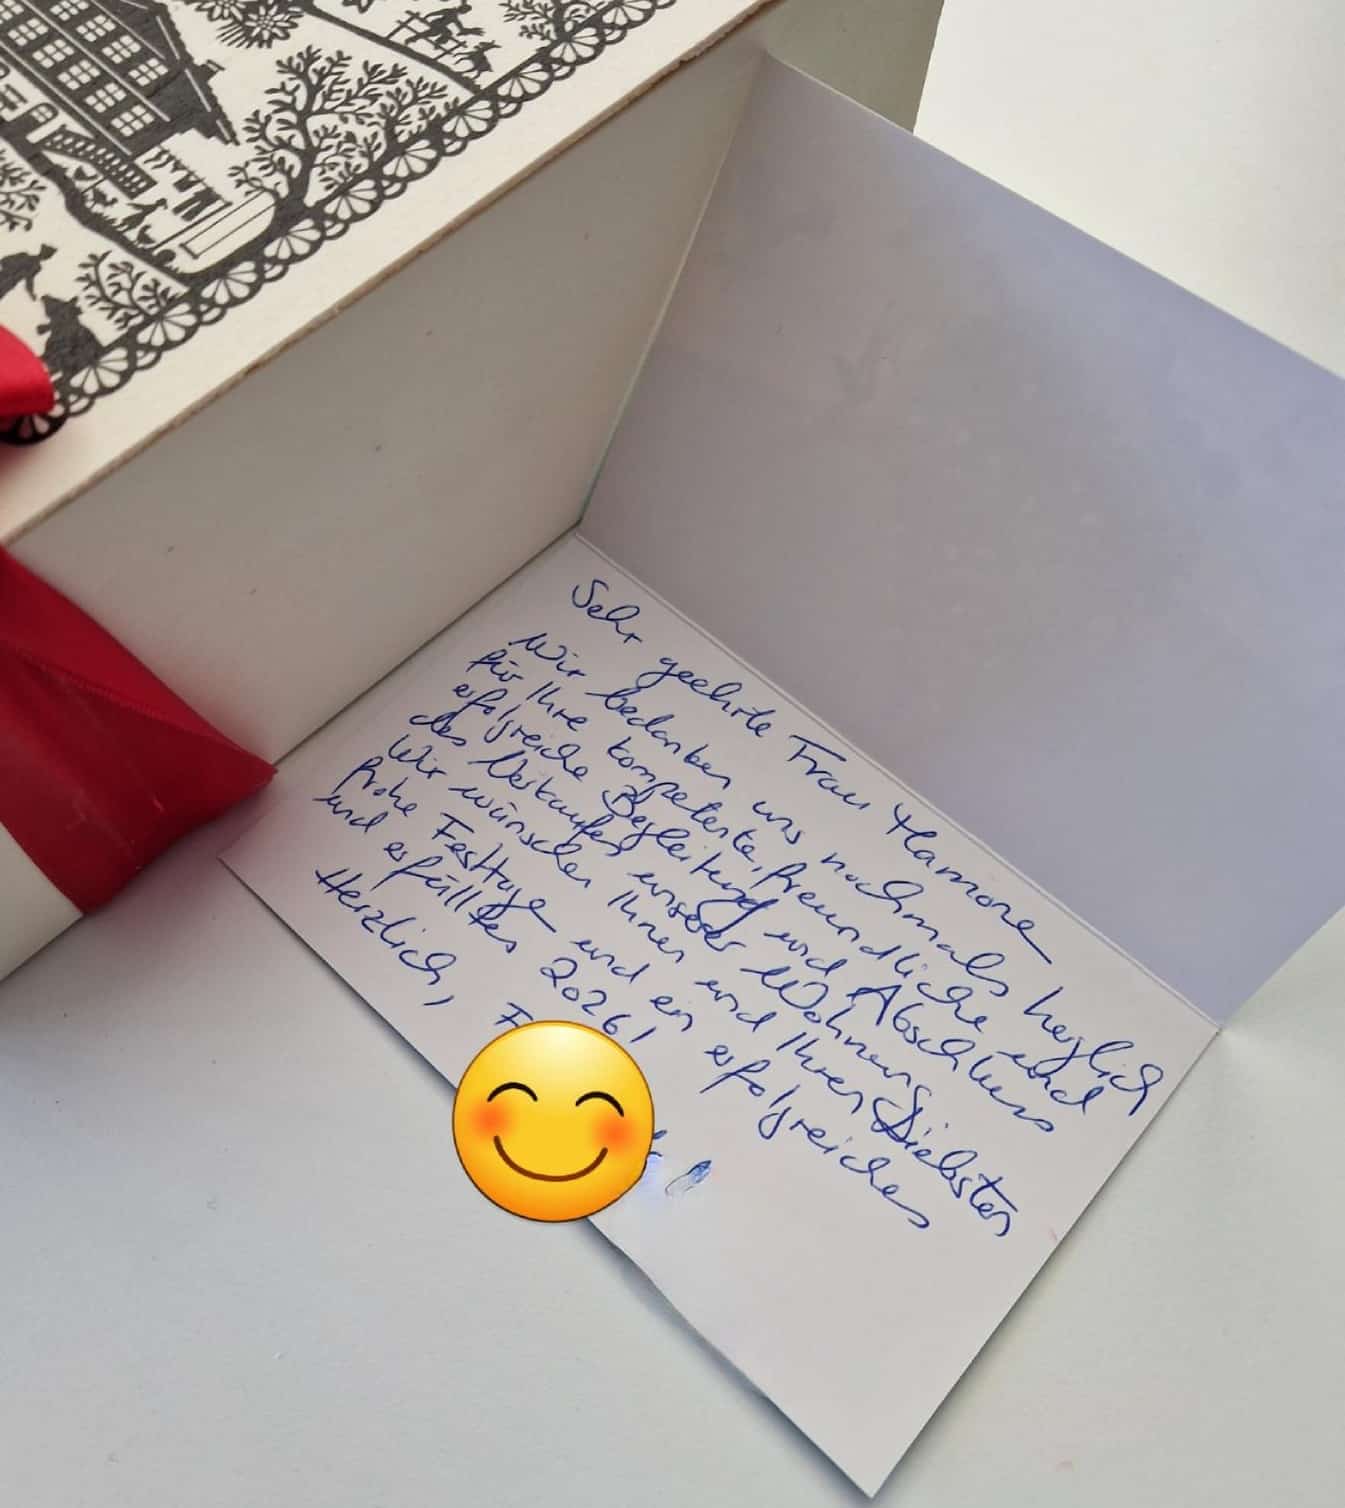 Sehr geehrte Frau Hamone
Wir bedanken uns nochmals herzlich
für Ihre kompetente, freundliche und
erfolgreiche Begleitung und Abschluss
des Verkaufes unserer Wohnung.
Wir wünschen Ihnen und Ihren Liebsten
frohe Festtage und ein erfolgreiches
und erfülltes 2026!
Herzlich,